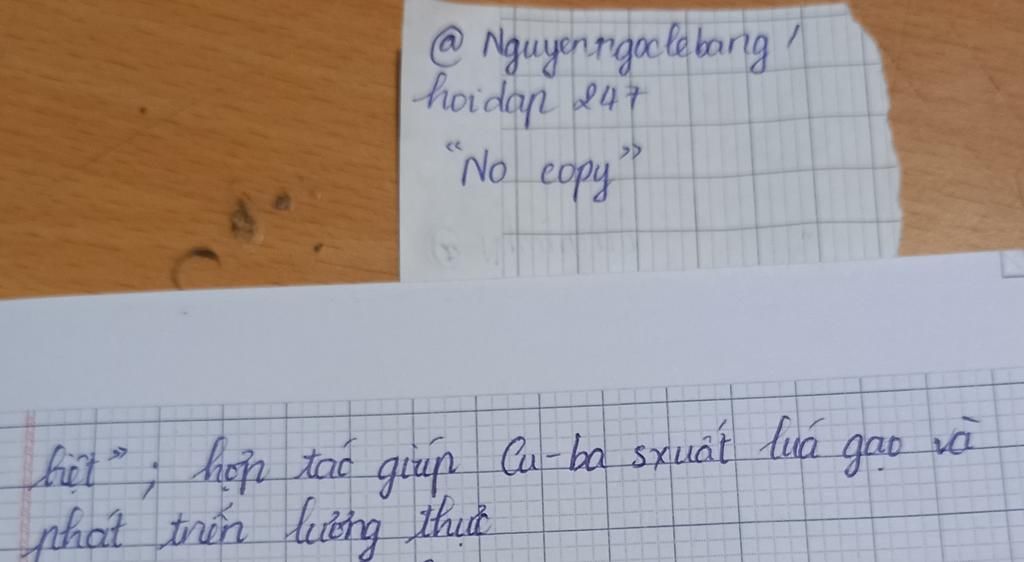 @ Nguyenngoclebang /
hoidap 247
“No copy”
hột”; hợp tác giúp Cu-ba sxuất luá gạo và
phát triển lương thực